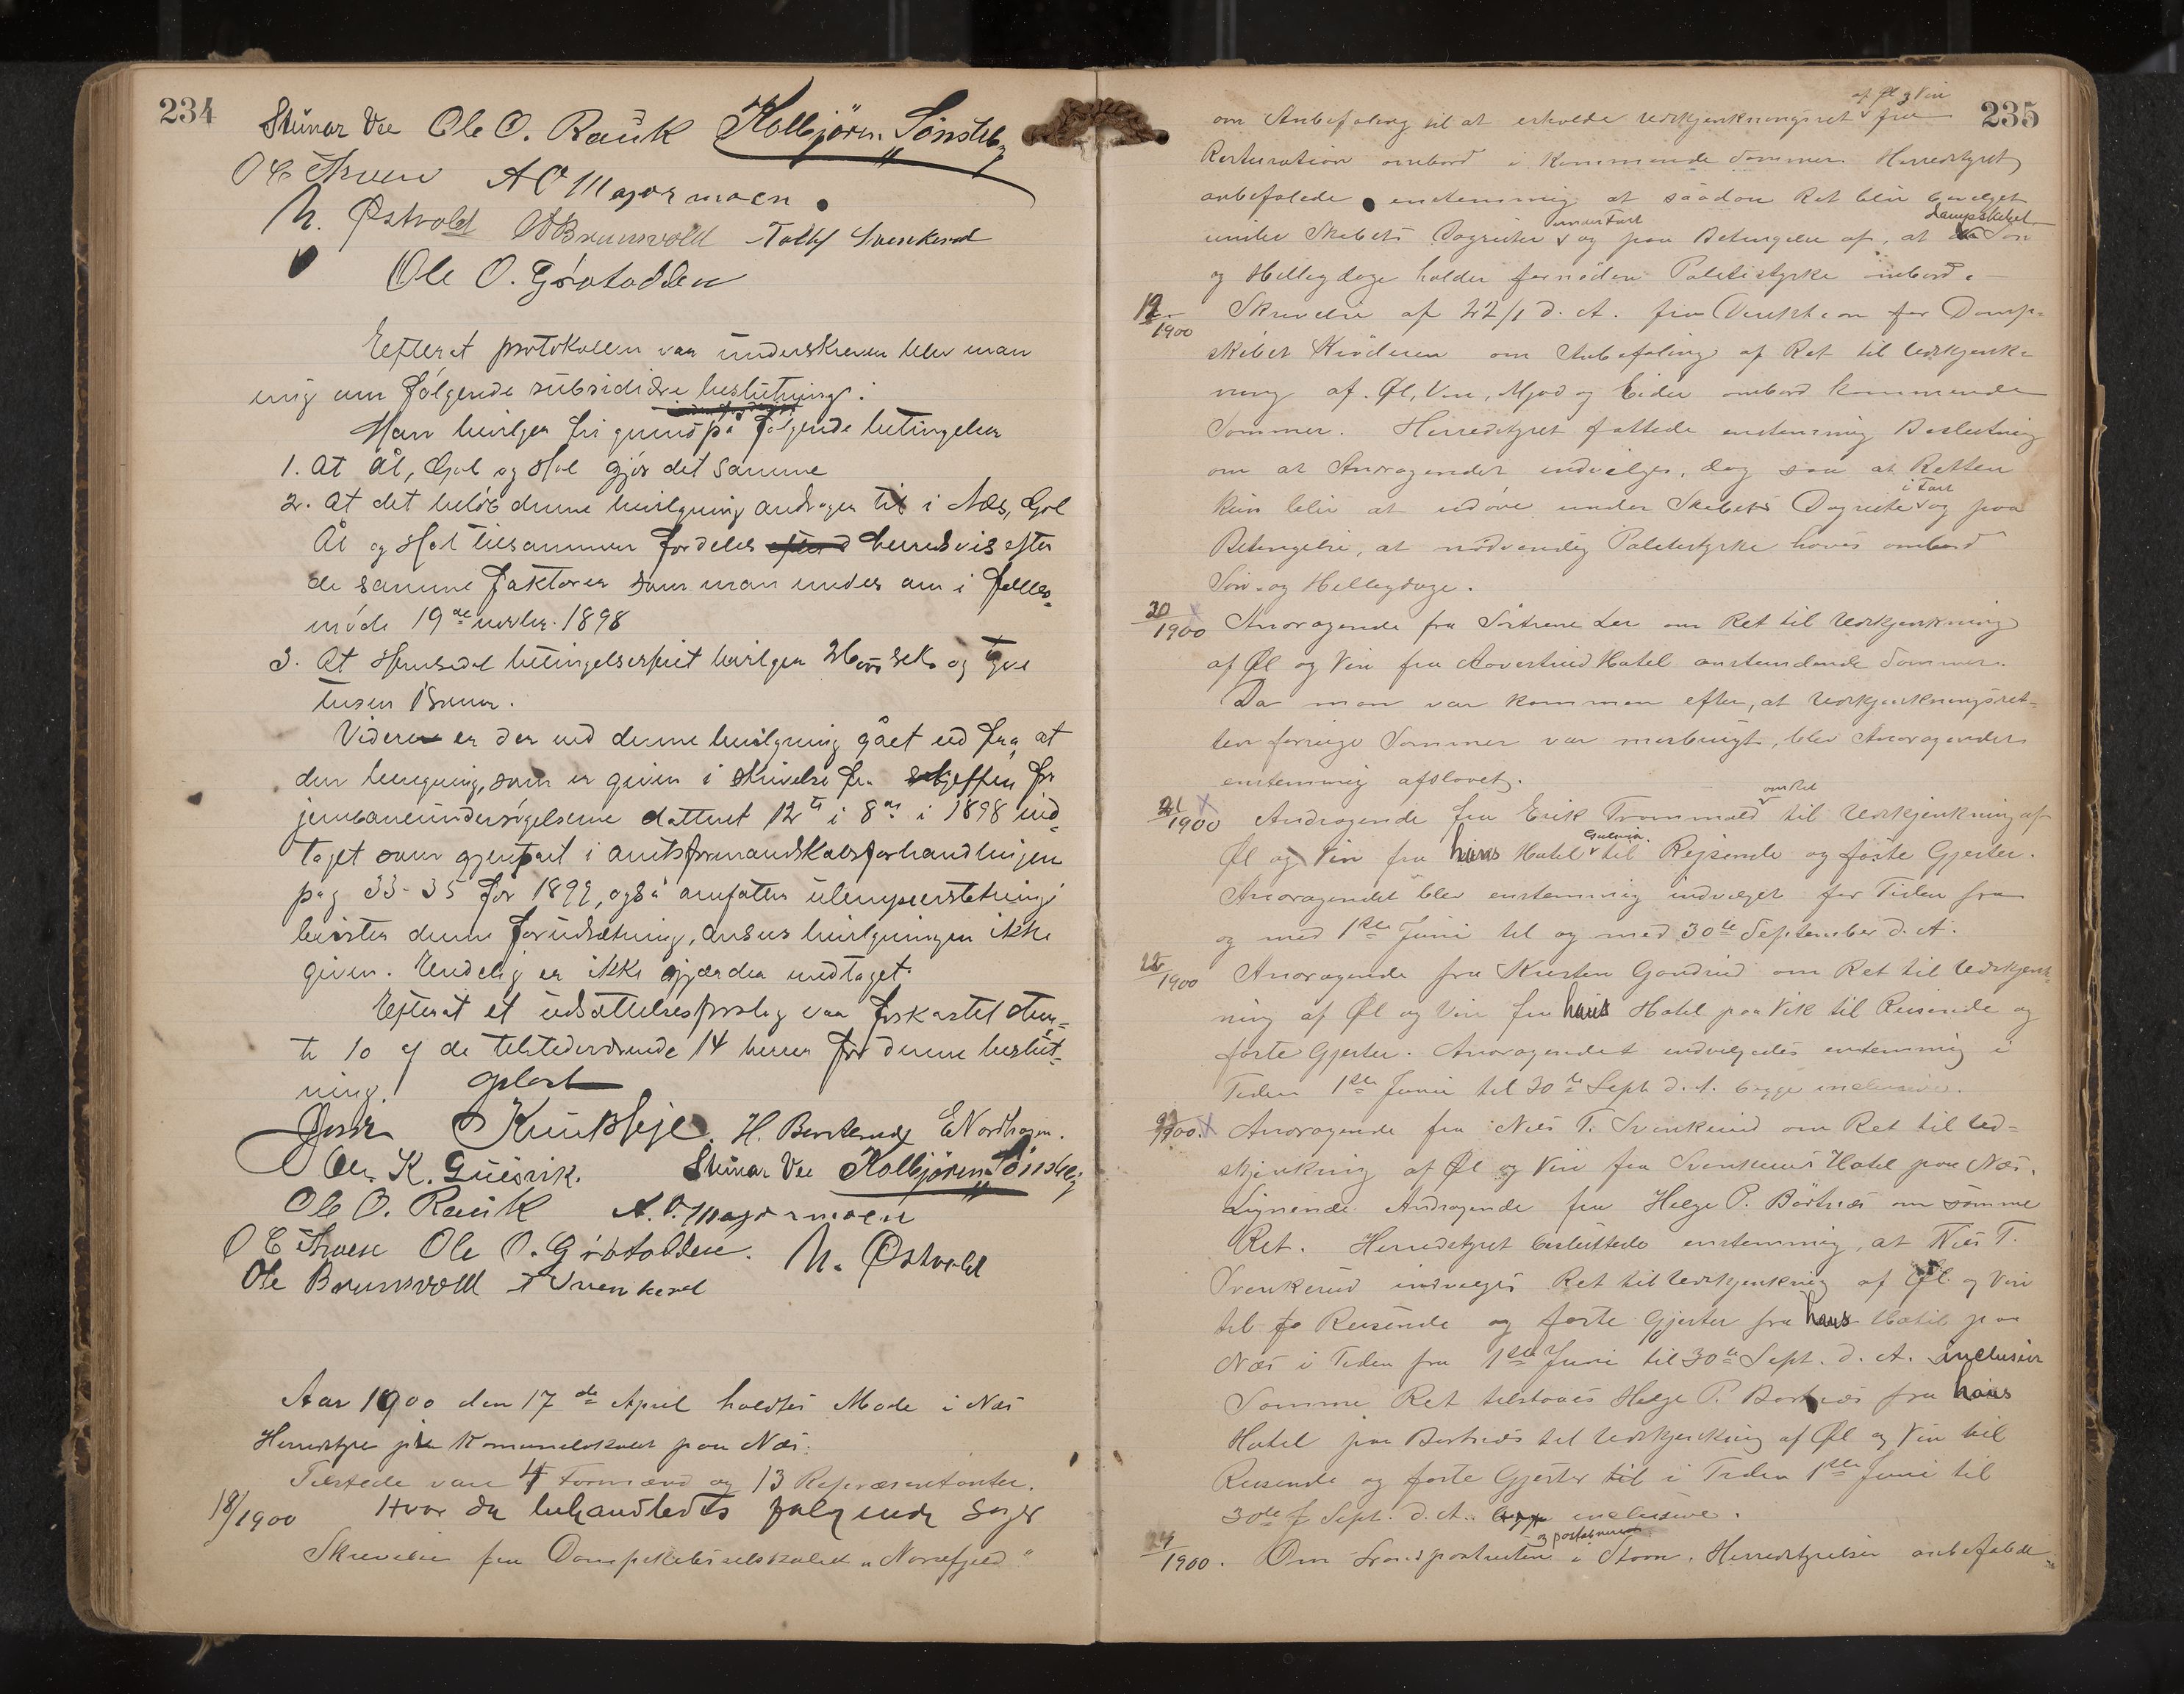 234
Steinar Vee Ole O. Rauk Kolbjörn Sönsteby
O E Thoen A O Majormoen
N. Østvold O Brunsvold Tollef Svenkerud
Ole O. Grøtodden
Efterat protokollen var underskreven blev man
enig om følgende subsidiære beslutning:
Man bevilger fri grund på følgende betingelser
1. At Ål, Gol og Hol gjør det samme
2. At det beløb denne bevilgning andrager til i Næs, Gol
Ål og Hol tilsammen fordeles herredsvis efter
de samme faktorer som man enedes om i fælles-
møde 19de novbr. 1898
3. At Hemsedal betingelsesfrit bevilger 26000 seks og tyve
tusen kroner.
Videre er der ved denne bevilgning gået ud fra, at
den beregning, som er given i skrivelse fra chefen for
jernbaneundersøgelserne dateret 12te i 8de i 1898 ind-
taget som gjenpart i amtsformandskabsforhandlingen
pag 33-35 for 1899, også omfatter ulempeerstatning
brister denne forudsætning, ansees bevilgningen ikke
given. Endelig er ikke gjærder medtaget.
Efterat et udsættelsesforslag var forkastet stem-
te 10 af de tilstedeværende 14 herrer for denne beslut-
ning.
oplæst
Knut Heje. H. Bersterud E Nordhagen.
Ole K. Guisvik. Steinar Vee Kolbjörn Sönsteby
Ole O. Rauk A. O. Majormoen
O E Thoen Ole O. Grøtodden. N. Østvold
Ole Brunsvold T Svenkerud
Aar 1900 den 17de April holdtes Møde i Næs
Herredstyre i Komunelokalet paa Næs.
Tilstede vare 4 Formænd og 13 Repræsentanter.
18/1900 Hvor da behandledes følgende sager
Skrivelse fra Dampskibsselskabet "Norefjeld"
235
af Øl & Vin
om Anbefaling til at erholde Udskjenkningsret fra
Resturation ombord i kommende Sommer. Herredstyret
anbefalede enstemmig at saadan Ret blir bevilget
under Fart Dampskibet
under Skibets Dagruter og paa Betingelse af, at Søn
og Helligdage holder fornøden Politistyrke ombord.
19/1900 Skrivelse af 22/1 d. A. fra Direktion for Damp-
skibet Krøderen om Anbefaling af Ret til Udskjenk-
ning af Øl, Vin, Mjød og Cider ombord kommende
Sommer. Herredstyret fattede enstemmig Beslutning
om at Andragendet indvilges, dog saa at Retten
i Fart
kun blir at udøve under Skibets Dagrute og paa
Betingelse, at nødvendig Politistyrke haves ombord
Søn- og Helligdage.
20/1900 Andragende fra Söstrene Lee om Ret til Udskjenkning
af Øl og Vin fra Rovestrud Hotel anstundende Sommer.
Da man var kommen efter, at Udskjenkningsret-
ten forrige Sommer var misbrugt, blev Andragendet
enstemmig afslaaet.
om Ret
21/1900 Andragende fra Erik Trommald til Udskjenkning af
Gulsvik
Øl og Vin fra hans Hotel til Rejsende og faste Gjester.
Andragendet blev enstemmig indvilget for Tiden fra
og med 1ste Juni til og med 30te September d. A.
22/1900 Andragende fra Kristen Gandrud om Ret til Udskjenk-
ning af Øl og Vin fra hans Hotel paa Vik til Reisende og
faste Gjester. Andragendet indvilgedes enstemmig i
Tiden 1ste Juni til 30te Sept d. A. begge inclusive.
23/1900. Andragende fra Nils T. Svenkerud om Ret til Ud-
skjenkning af Øl og Vin fra Svenkerud Hotel paa Næs.
Lignende Andragende fra Helge P. Börtnæs om samme
Ret. Herredstyret besluttede enstemmig, at Nils T.
Svenkerud indvilges Ret til Udskjenkning af Øl og Vin
til Reisende og faste Gjester fra hans Hotel paa
Næs i Tiden fra 1ste Juni til 30te Sept. d. A. inclusiv
Samme Ret tilstaaes Helge P. Bortnæs fra hans
Hotel paa Bortnæs til Udskjenkning af Øl og Vin til
Reisende og faste Gjester til i Tiden 1ste Juni til
30te Sept. d. A. inclusive.
og postaabneri
24/1900. Om i Strøm. Herredstyrelsen anbefalede